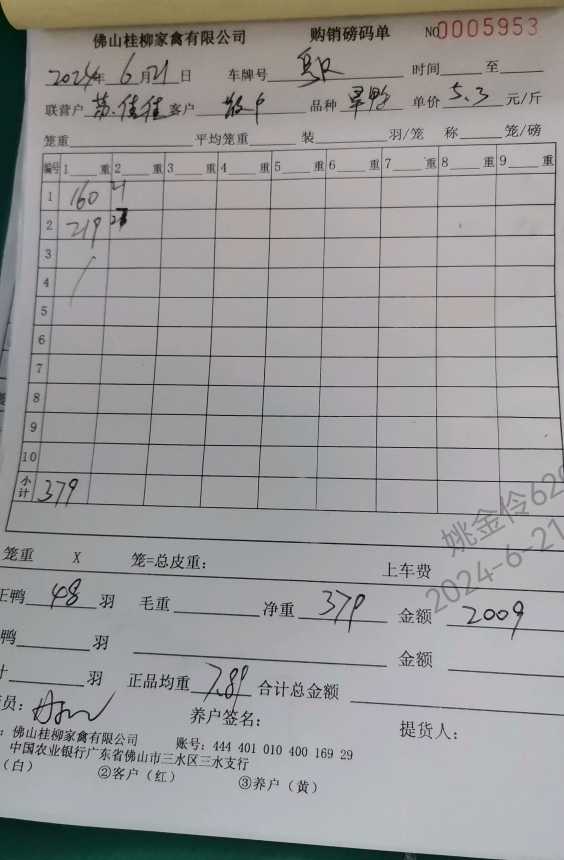 佛山桂柳家禽有限公司 购销磅码单 NO0005953
2024年 6月21日 车牌号 时间 至
联营户 苏佳佳 客户 散户 品种 旱鸭 单价 5.3 元/斤
笼重 平均笼重 装 羽/笼 称 笼/磅
编号 1 重 2 重 3 重 4 重 5 重 6 重 7 重 8 重 9 重
1 160 21
2 219
3
4
5
6
7
8
9
10
小计 379
笼重 X 笼=总皮重: 上车费
正鸭 48 羽 毛重 净重 379 金额 2009
鸭 羽 金额
计 羽 正品均重 7.89 合计总金额
员: 养户签名: 提货人:
: 佛山桂柳家禽有限公司 账号: 444 401 010 400 169 29
中国农业银行广东省佛山市三水区三水支行
(白) ②客户(红) ③养户(黄)
姚金伶629
2024-6-21